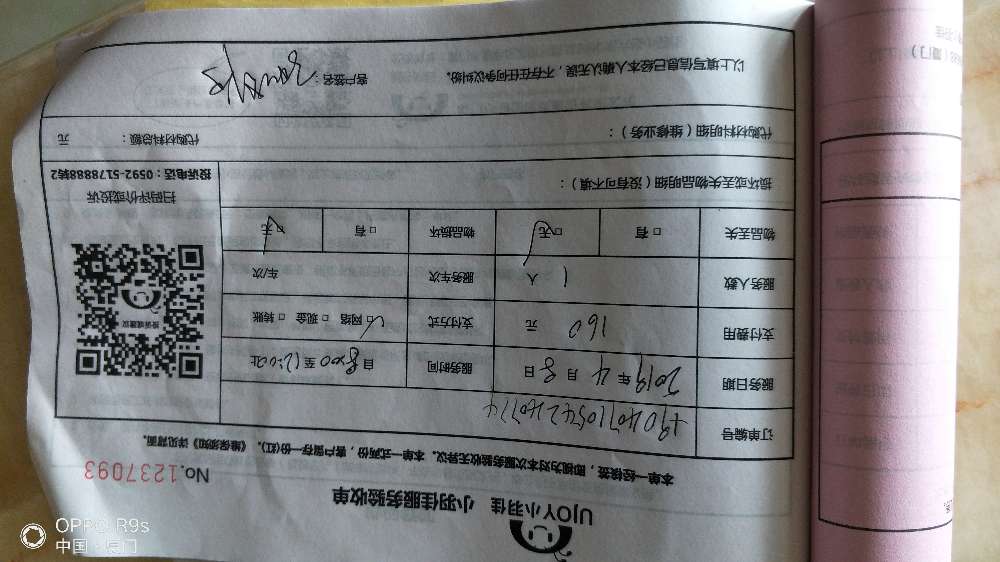 UJOY小羽佳 小羽佳服务验收单
No.1237093
本单一经核签，即视为对本次服务验收无异议。本单一式两份，客户留存一份(红)。《维保须知》详见背面。
订单编号
服务日期 2019年4月8日 服务时间 自8:00至12:00止
支付费用 160 元 支付方式 ☑网络 □现金 □转账
服务人数 1 人 服务车次 车/次
物品丢失 □有 ☑无 物品损坏 □有 ☑无
损坏或丢失物品明细（没有可不填）：
投诉或建议
扫码评价或投诉
投诉电话：0592-5178888转2
代购材料明细（维修业务）： 代购材料总额： 元
以上填写信息已经本人确认无误，不存在任何争议纠纷。 客户签名：
OPPO R9s
中国·厦门